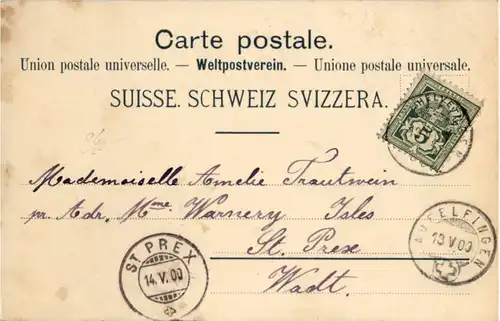 Carte postale.
Union postale universelle. — Weltpostverein. — Unione postale universale.
SUISSE. SCHWEIZ SVIZZERA.
5
Mademoiselle Amelie Trautwein
pr. Adr. Mme Warnery Isles
St. Prex
Wadt.
ST PREX
14.V.00
BUFELFINGEN
13 V 00